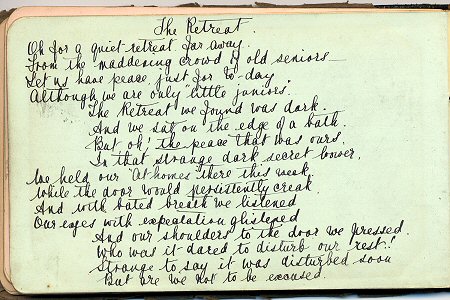 The Retreat.
Oh for a quiet retreat far away.
From the maddening crowd of old seniors
Let us have peace just for to-day.
Although we are only "little juniors.
The Retreat we found was dark.
And we sat on the edge of a bath.
But oh! the peace that was ours.
In that strange dark secret bower.
We held our "At homes" there this week.
While the door would persistently creak.
And with bated breath we listened
Our eyes with expectation glistened
And our shoulders to the door we pressed.
Who was it dared to disturb our "rest"!
Strange to say it was disturbed soon
But are we not to be excused.